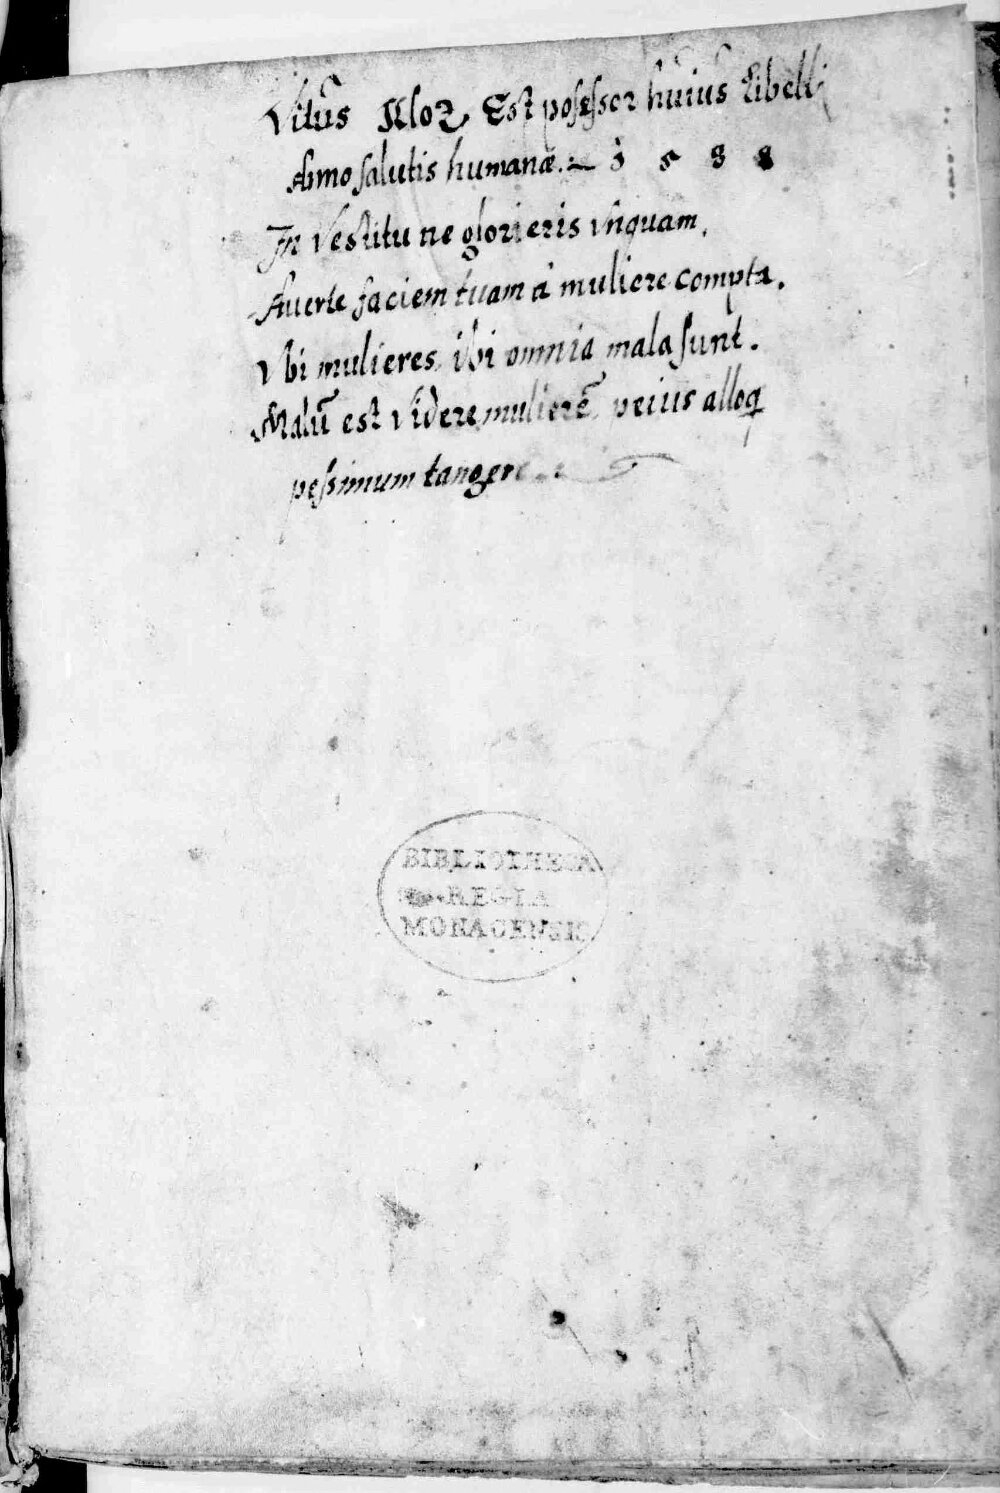 Vitus Kloz Est possessor huius Libelli
Anno salutis humanæ :~ 1 5 8 8
In Vestitu ne glorieris vnquam,
Auerte faciem tuam à muliere compta.
Vbi mulieres, ibi omnia mala sunt.
Malū est videre mulierē, peius alloq
pessimum tangere
BIBLIOTHECA
REGIA
MONACENSIS